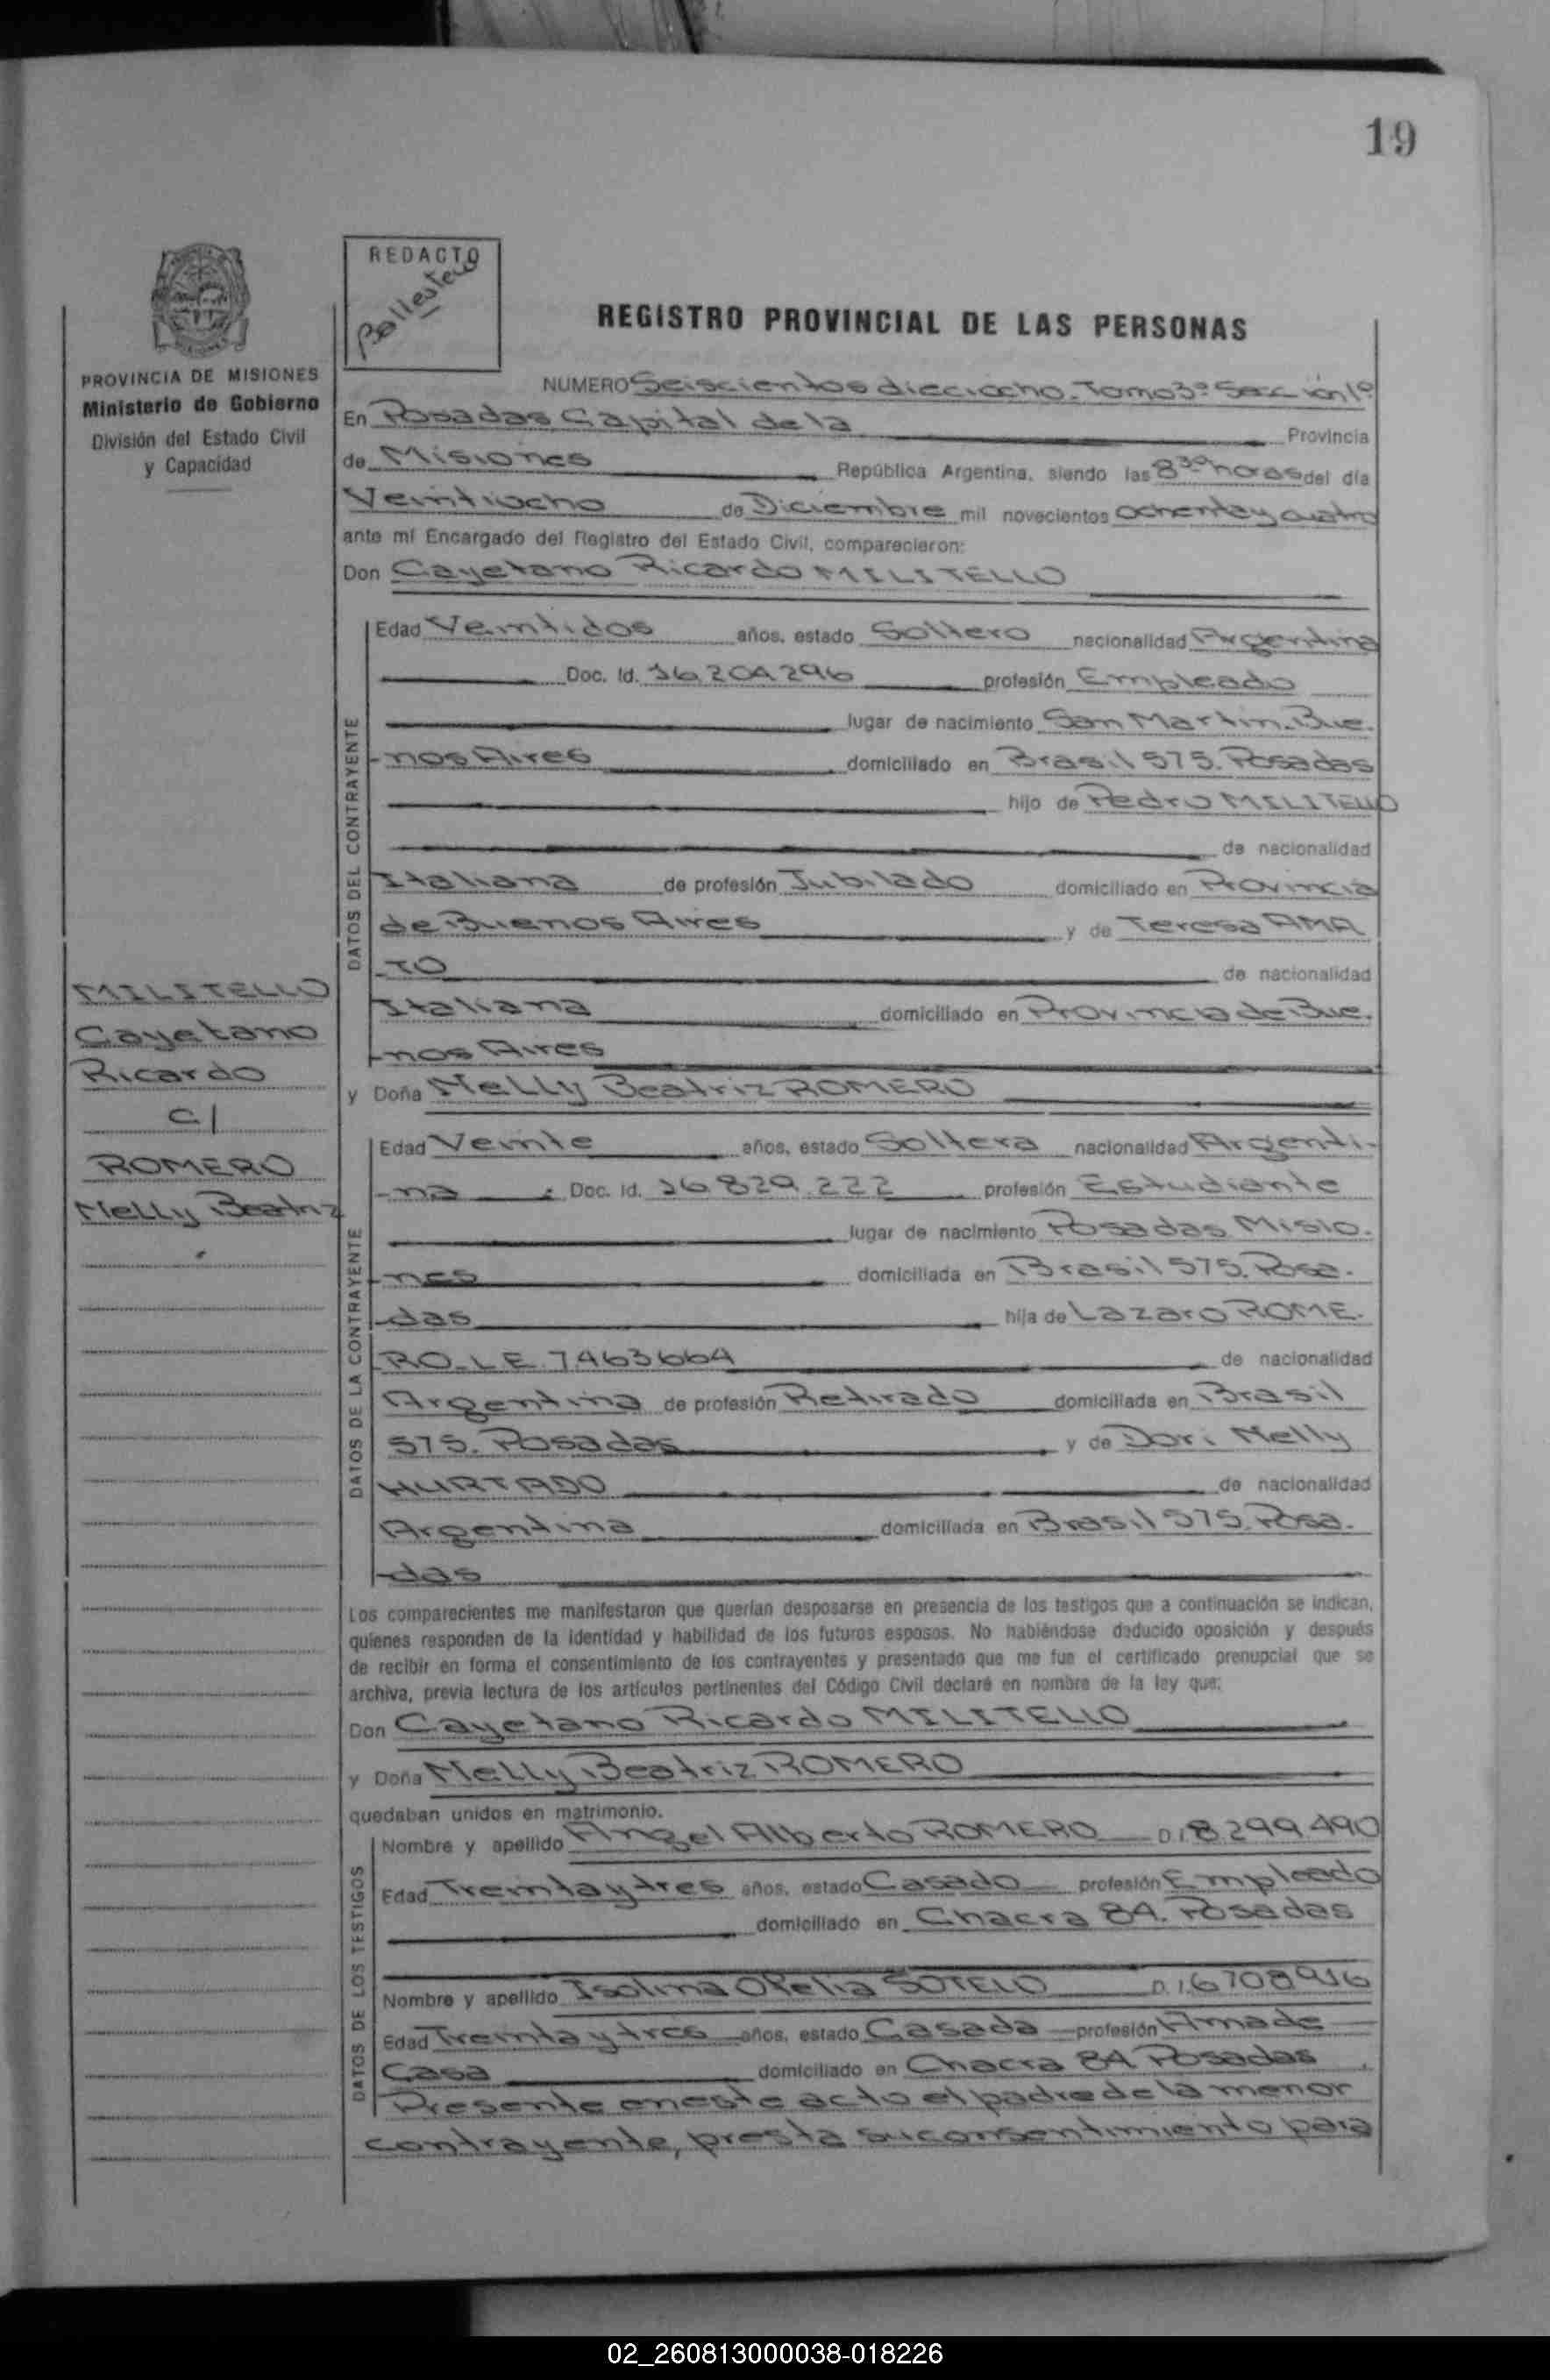 19
REDACTO
Ballestero
REGISTRO PROVINCIAL DE LAS PERSONAS
PROVINCIA DE MISIONES
Ministerio de Gobierno
División del Estado Civil
y Capacidad
NUMERO Seiscientos dieciocho. Tomo 3º Sección 1º
En Posadas Capital de la Provincia
de Misiones República Argentina, siendo las 8 30 horas del día
Veintiocho de Diciembre mil novecientos ochenta y cuatro
ante mí Encargado del Registro del Estado Civil, comparecieron:
Don Cayetano Ricardo MILITELLO
DATOS DEL CONTRAYENTE
Edad Veintidos años, estado Soltero nacionalidad Argentina
Doc. Id. 16.204.296 profesión Empleado
lugar de nacimiento San Martin. Bue-
-nos Aires domiciliado en Brasil 575. Posadas
hijo de Pedro MILITELLO
de nacionalidad
Italiana de profesión Jubilado domiciliado en Provincia
de Buenos Aires y de Teresa AMA
-TO de nacionalidad
Italiana domiciliado en Provincia de Bue-
-nos Aires
MILITELLO
Cayetano
Ricardo
c/
ROMERO
Nelly Beatriz
y Doña Nelly Beatriz ROMERO
DATOS DE LA CONTRAYENTE
Edad Veinte años, estado Soltera nacionalidad Argenti-
-na Doc. Id. 16.829.222 profesión Estudiante
lugar de nacimiento Posadas Misio-
-nes domiciliada en Brasil 575. Posa-
-das hija de Lazaro ROME-
RO_L E 7463664 de nacionalidad
Argentina de profesión Retirado domiciliada en Brasil
575. Posadas y de Dori Nelly
HURTADO de nacionalidad
Argentina domiciliada en Brasil 575. Posa-
-das
Los comparecientes me manifestaron que querían desposarse en presencia de los testigos que a continuación se indican,
quienes responden de la identidad y habilidad de los futuros esposos. No habiéndose deducido oposición y después
de recibir en forma el consentimiento de los contrayentes y presentado que me fue el certificado prenupcial que se
archiva, previa lectura de los artículos pertinentes del Código Civil declaré en nombre de la ley que:
Don Cayetano Ricardo MILITELLO
y Doña Nelly Beatriz ROMERO
quedaban unidos en matrimonio.
DATOS DE LOS TESTIGOS
Nombre y apellido Angel Alberto ROMERO D.I 8.299.490
Edad Treinta y tres años, estado Casado profesión Empleado
domiciliado en Chacra 84. Posadas
Nombre y apellido Isolina Ofelia SOTELO D.I. 6708916
Edad Treinta y tres años, estado Casada profesión Ama de
Casa domiciliado en Chacra 84 Posadas
Presente en este acto el padre de la menor
contrayente, presta su consentimiento para
02_260813000038-018226